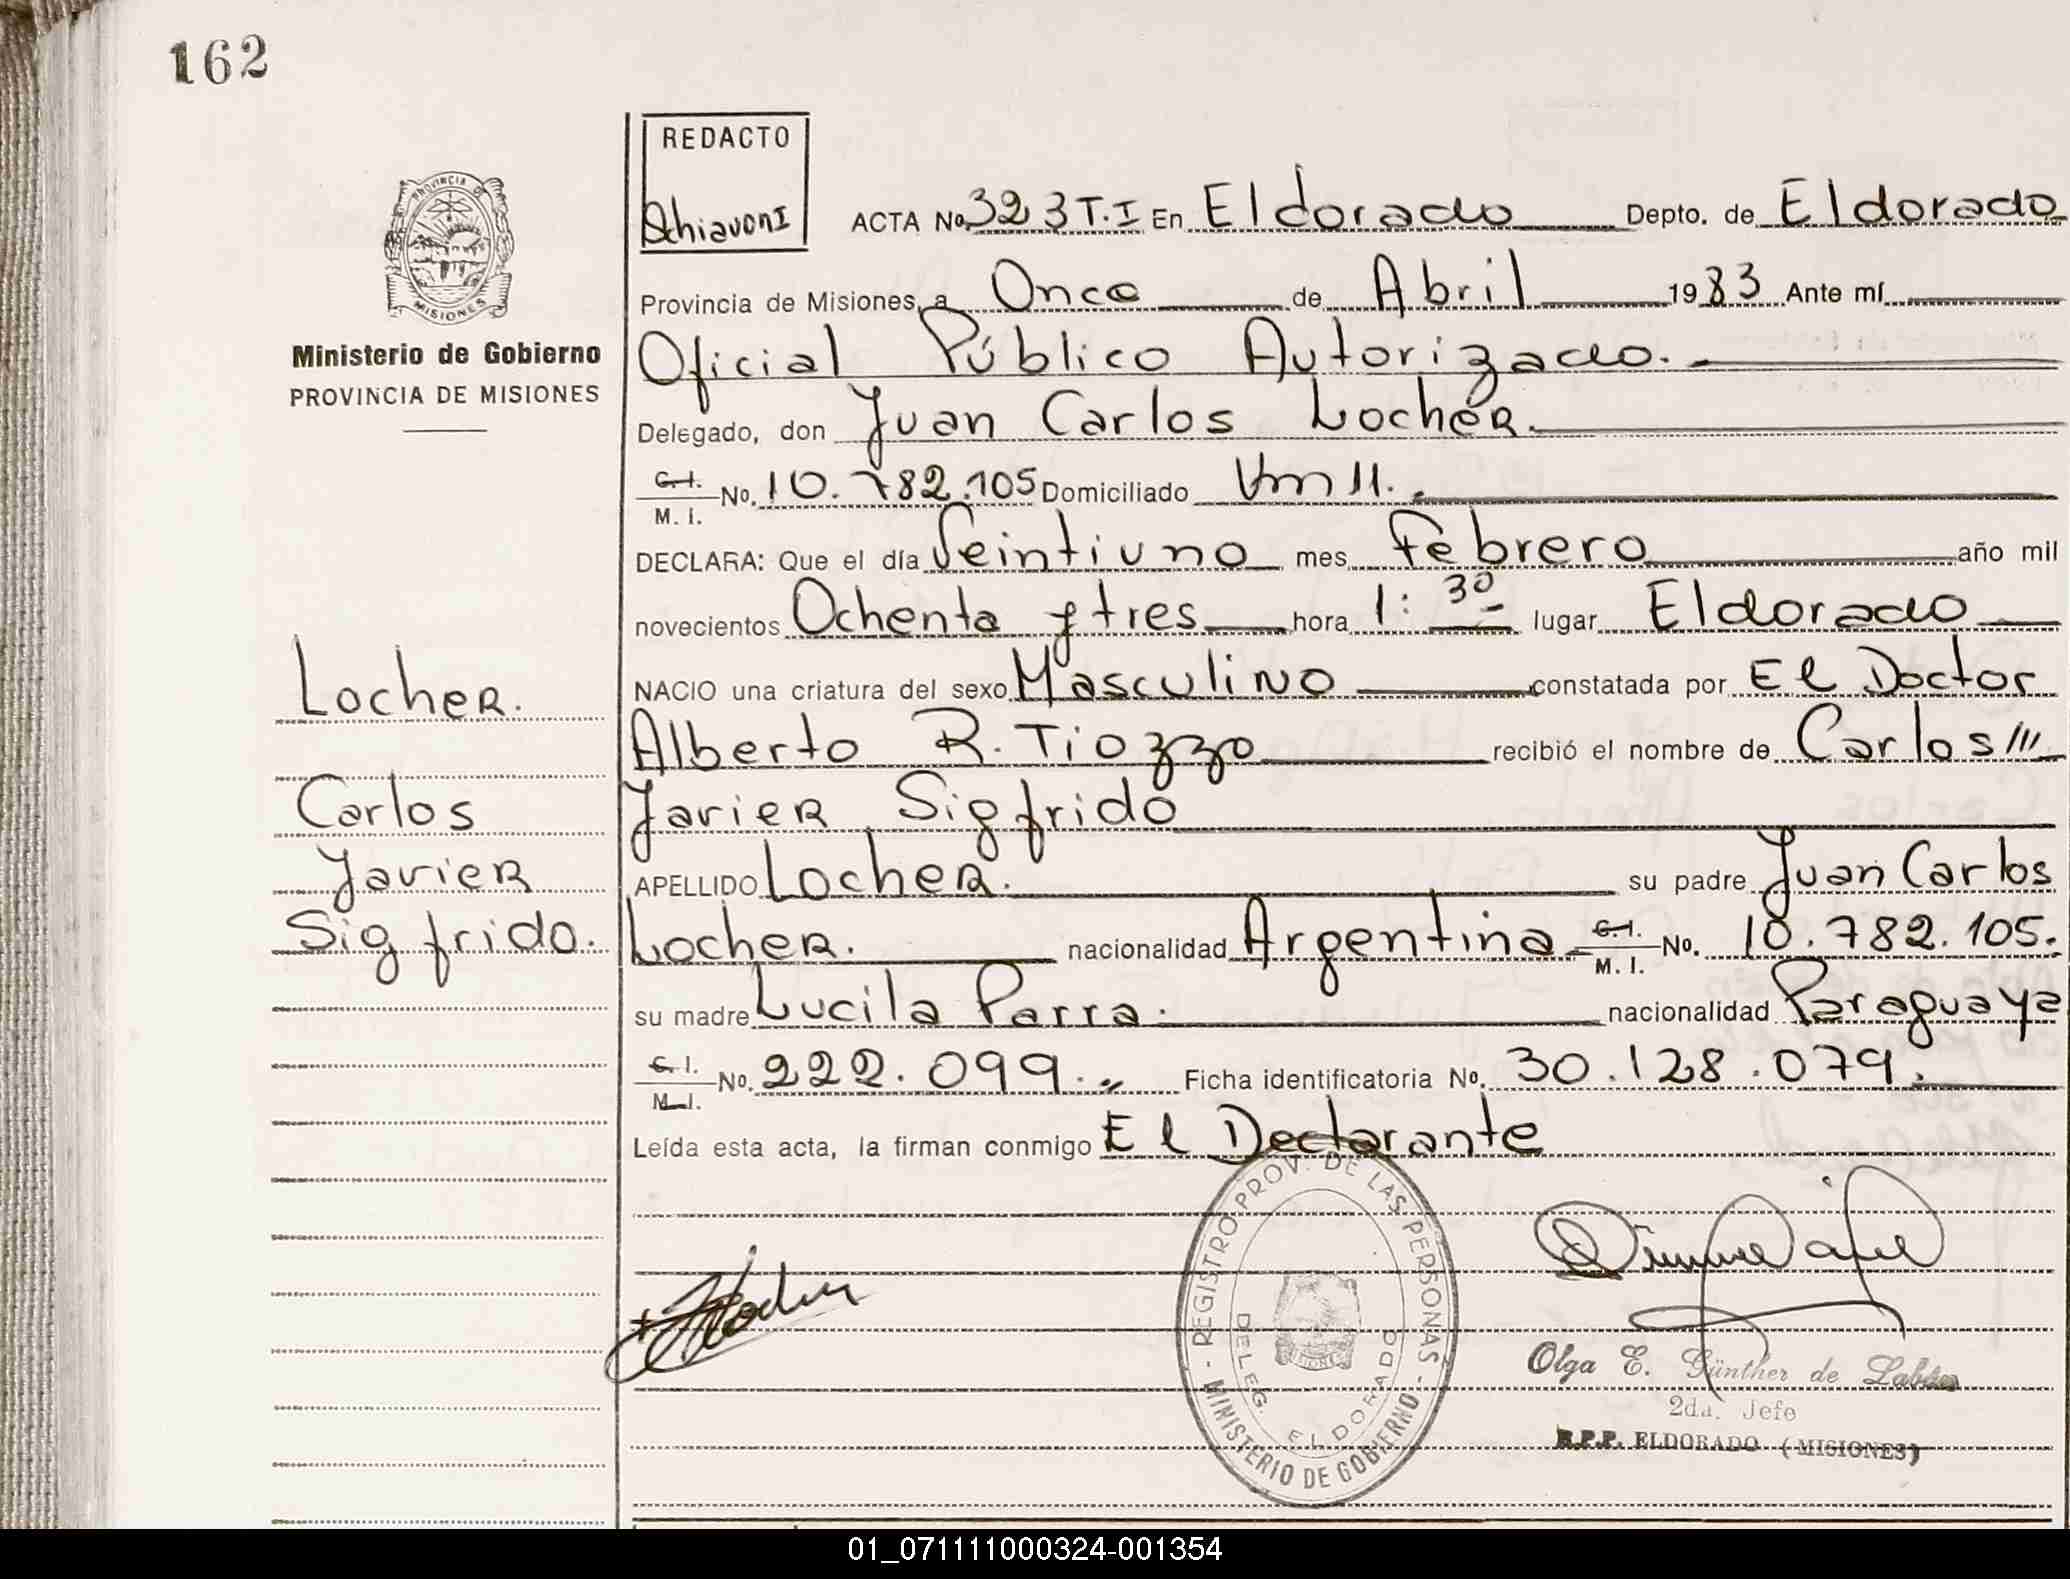 162
REDACTO
Schiavoni
PROVINCIA DE
MISIONES
Ministerio de Gobierno
PROVINCIA DE MISIONES
ACTA No. 323 T.I En Eldorado Depto. de Eldorado
Provincia de Misiones, a Once de Abril 1983 Ante mí
Oficial Público Autorizado.
Delegado, don Juan Carlos Locher.
C.I. M.I. No. 10.782.105 Domiciliado Km 11.
DECLARA: Que el día Veintiuno mes Febrero año mil
novecientos Ochenta y tres hora 1:30 lugar Eldorado
NACIO una criatura del sexo Masculino constatada por El Doctor
Alberto R. Tiozzo recibió el nombre de Carlos ///
Javier Sigfrido
APELLIDO Locher. su padre Juan Carlos
Locher. nacionalidad Argentina C.I. M.I. No. 10.782.105.
su madre Lucila Parra. nacionalidad Paraguaya
C.I. M.I. No. 222.099. Ficha identificatoria No. 30.128.079.
Leída esta acta, la firman conmigo El Declarante
Locher.
Carlos
Javier
Sigfrido.
REGISTRO PROV. DE LAS PERSONAS - MINISTERIO DE GOBIERNO -
DELEG. ELDORADO
Olga E. Günther de
2da. Jefe
R.P.P. ELDORADO (MISIONES)
01_071111000324-001354